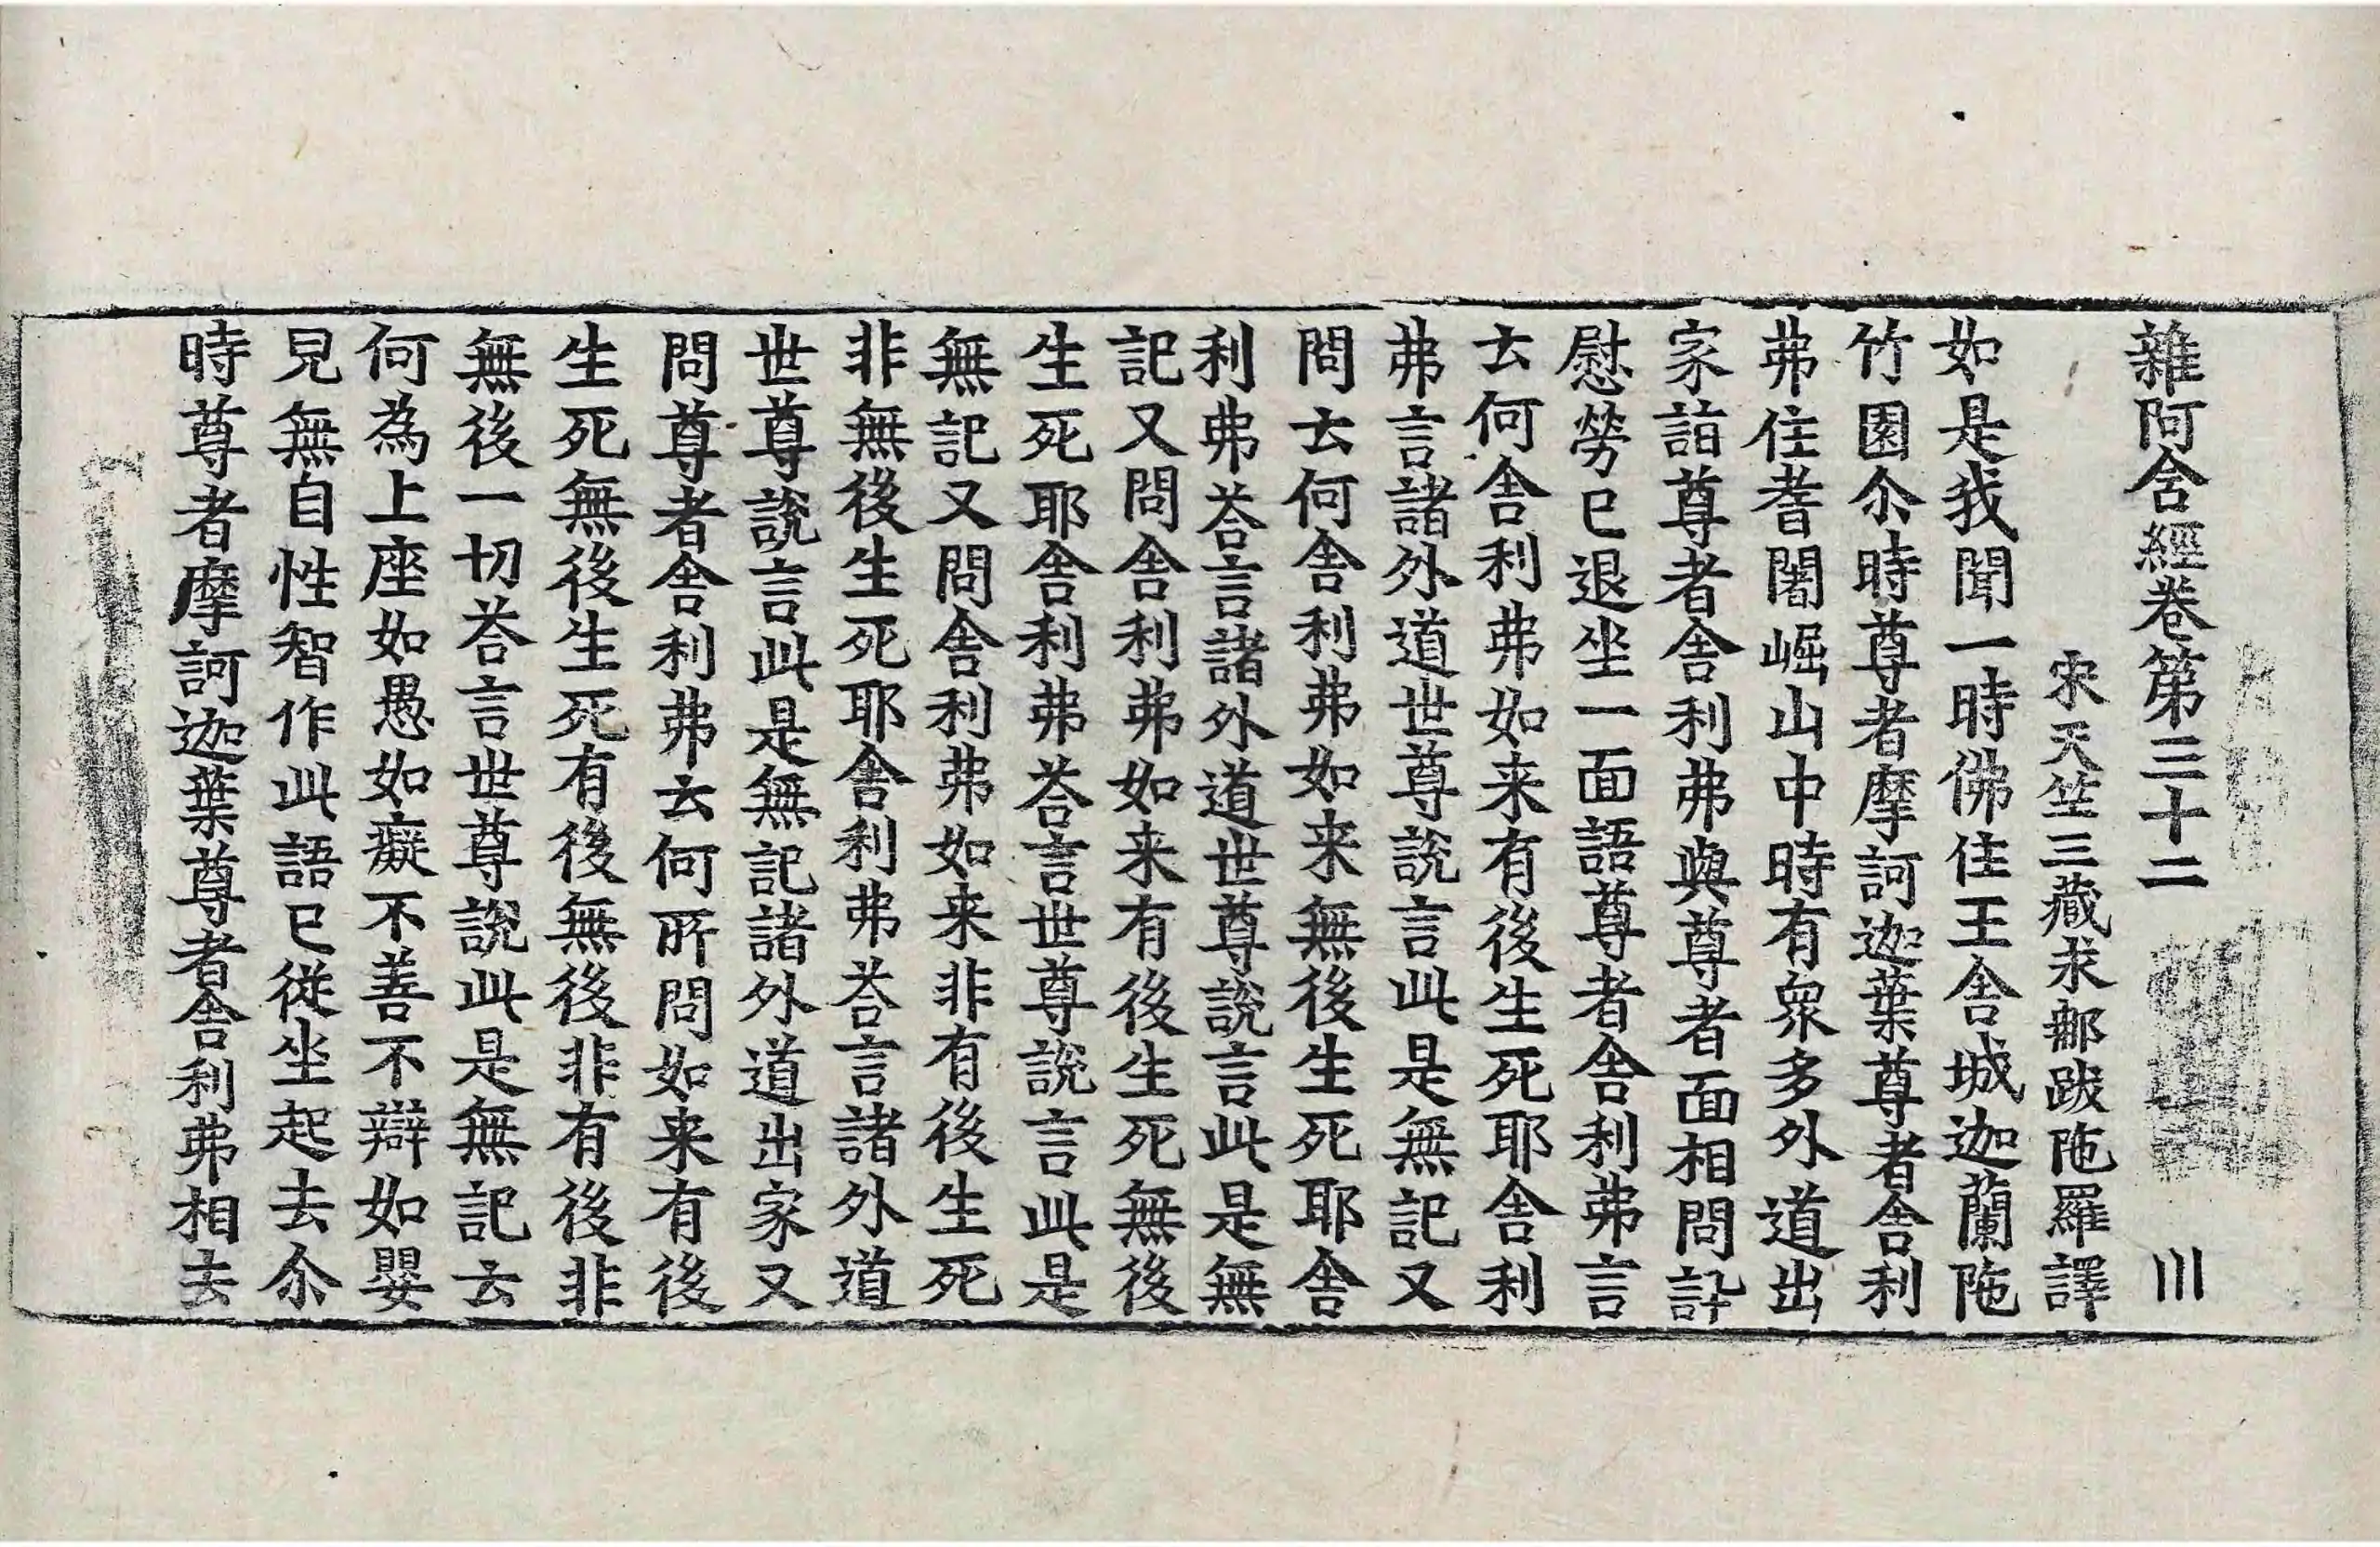 雜阿含經卷第三十二 川
宋天竺三藏求那跋陁羅譯
如是我聞一時佛住王舍城迦蘭陁
竹園尒時尊者摩訶迦葉尊者舍利
弗住耆闍崛山中時有衆多外道出
家詣尊者舍利弗與尊者面相問訊
慰勞已退坐一面語尊者舍利弗言
云何舍利弗如来有後生死耶舍利
弗言諸外道世尊說言此是無記又
問云何舍利弗如来無後生死耶舍
利弗荅言諸外道世尊說言此是無
記又問舍利弗如来有後生死無後
生死耶舍利弗荅言世尊說言此是
無記又問舍利弗如来非有後生死
非無後生死耶舍利弗荅言諸外道
世尊說言此是無記諸外道出家又
問尊者舍利弗云何所問如来有後
生死無後生死有後無後非有後非
無後一切荅言世尊說此是無記云
何為上座如愚如癡不善不辯如嬰
兒無自性智作此語已從坐起去尒
時尊者摩訶迦葉尊者舍利弗相去